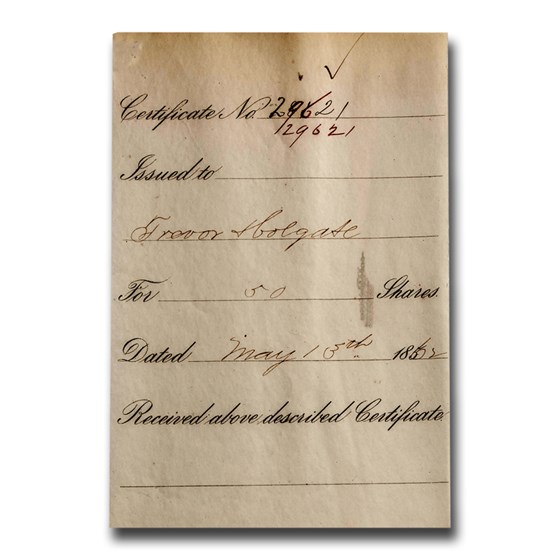 Certificate No. 29621
29621
Issued to
Trevor & Colgate
For 50 Shares.
Dated May 15th 1862
Received above described Certificate.